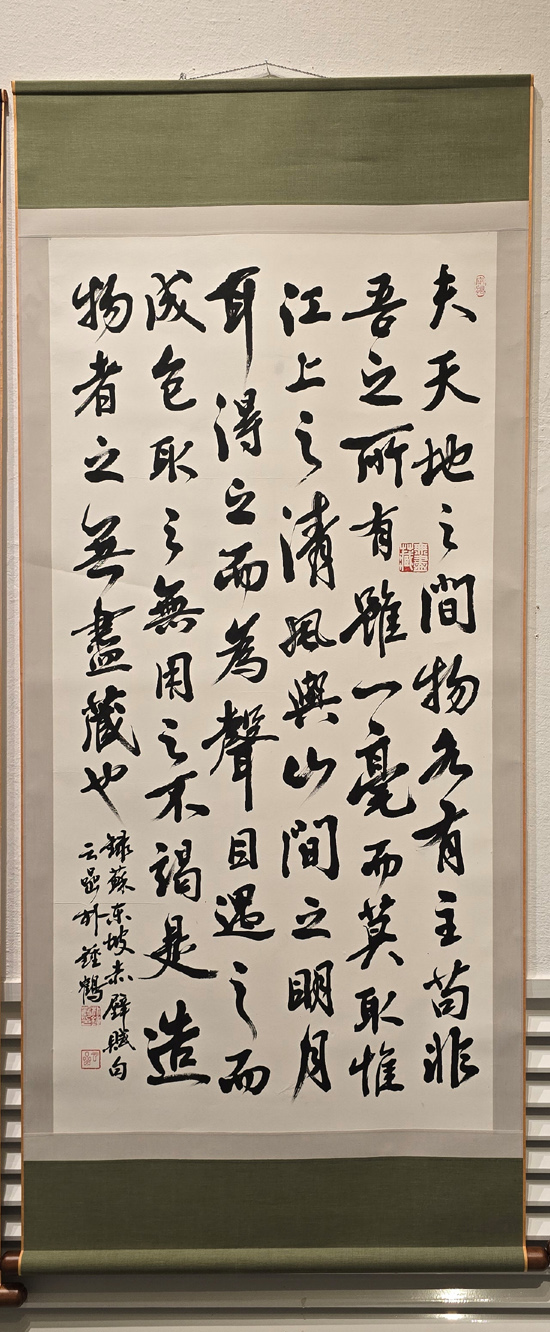 夫天地之間物各有主苟非
吾之所有雖一毫而莫取惟
江上之清風與山間之明月
耳得之而為聲目遇之而
成色取之無用之不竭是造
物者之無盡藏也
録蘇东坡赤壁賦句
云嵒朴鍾鶴
無盡藏